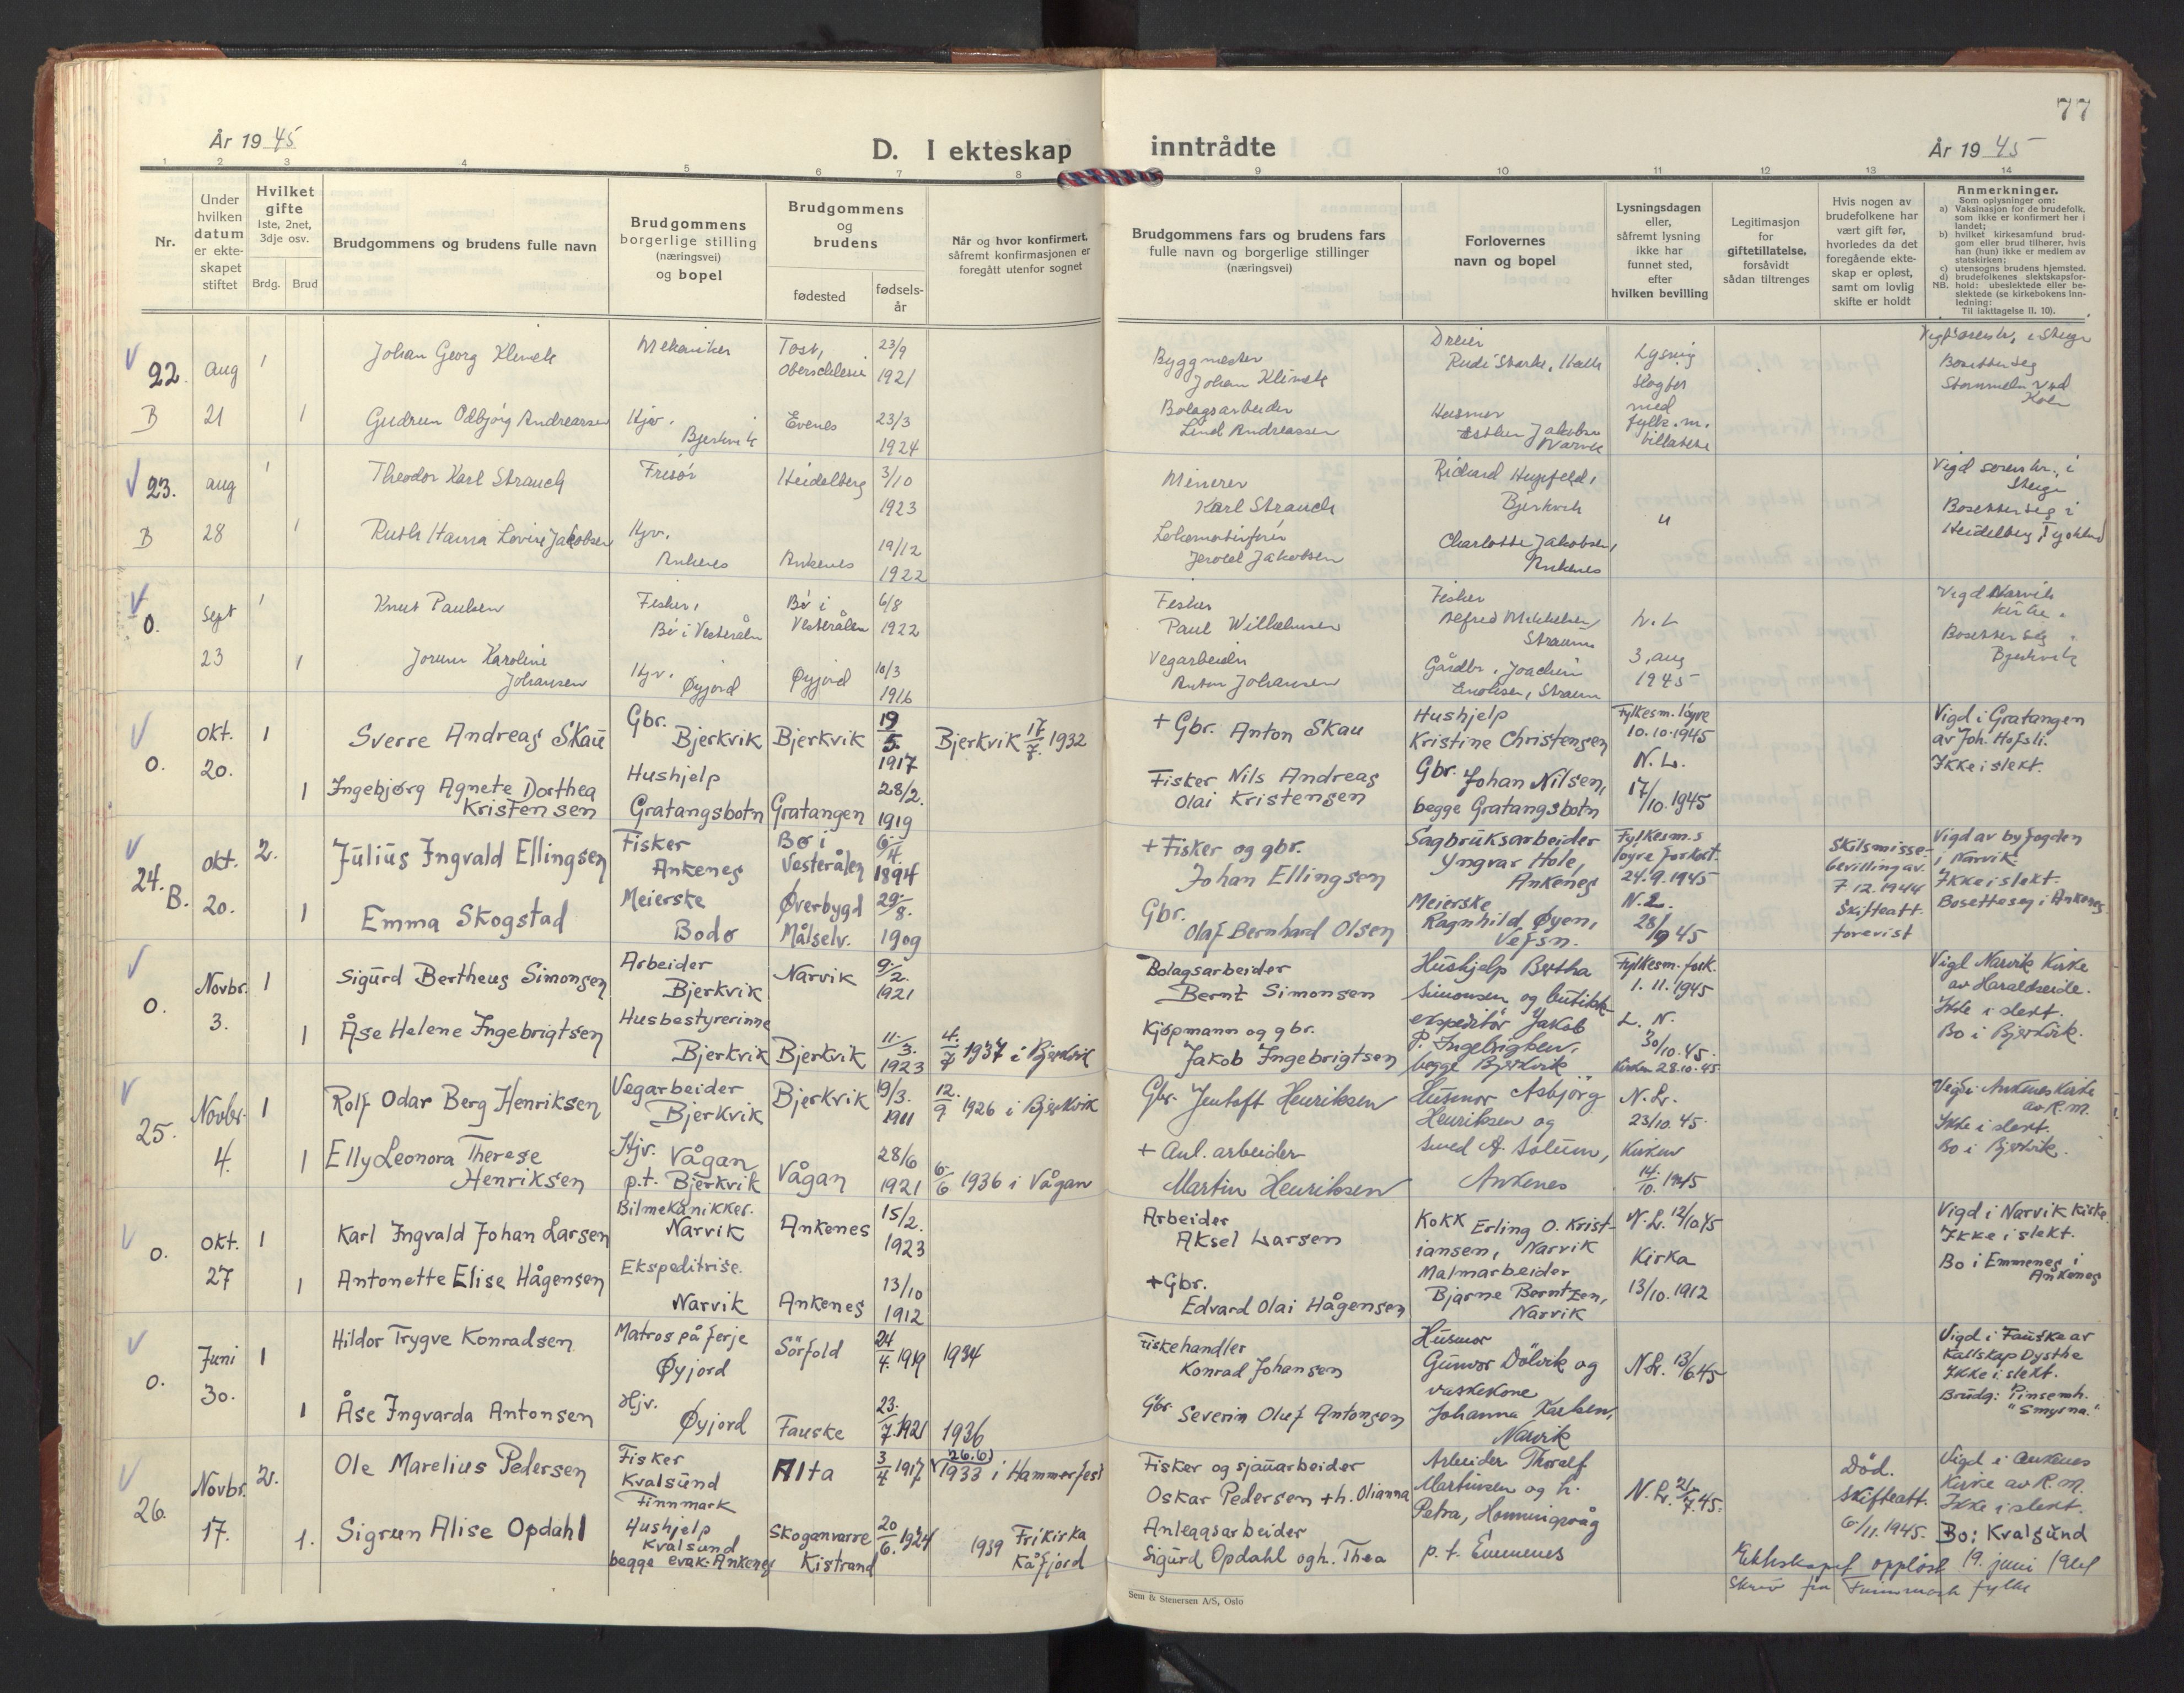 77
År 1945
D. I ekteskap inntrådte
År 1945
1 2 3 4 5 6 7 8 9 10 11 12 13 14
Nr.
Under hvilken datum er ekteskapet stiftet
Hvilket gifte
1ste, 2net, 3dje osv.
Brdg. Brud
Brudgommens og brudens fulle navn
Brudgommens borgerlige stilling (næringsvei) og bopel
Brudgommens og brudens
fødested
fødselsår
Når og hvor konfirmert, såfremt konfirmasjonen er foregått utenfor sognet
Brudgommens fars og brudens fars fulle navn og borgerlige stillinger (næringsvei)
Forlovernes navn og bopel
Lysningsdagen eller, såfremt lysning ikke har funnet sted, efter hvilken bevilling
Legitimasjon for giftetillatelse, forsåvidt sådan tiltrenges
Hvis nogen av brudefolkene har vært gift før, hvorledes da det foregående ekteskap er opløst, samt om lovlig skifte er holdt
Anmerkninger.
Som oplysninger om:
a) Vaksinasjon for de brudefolk, som ikke er konfirmert her i landet;
b) hvilket kirkesamfund brudgom eller brud tilhører, hvis han (hun) ikke er medlem av statskirken;
c) utensogns brudens hjemsted.
d) brudefolkenes slektskapsforhold: ubeslektede eller beslektede (se kirkebokens innledning:
NB.
Til iakttagelse II. 10).
22. Aug 1 Johan Georg Klimek Mekaniker Tost, Oberschlesien 23/9 1921
Byggmester Johan Klimek
Dreier Rudi Starke,
Lysning sløyfet med fylk.m. tillatelse
Vigd sorenskr. i Steigen
Bosetter seg
B 21 1 Gudrun Odbjørg Andreassen Hjv. Bjerkvik Evenes 23/3 1924
Bolagsarbeider Andreassen
Husmor Esther Jakobsen Narvik
23. Aug 1 Theodor Karl Strauch Frisør Heidelberg 3/10 1923
Karl Strauch
Richard Bjerkvik
"
Vigd sorenskr., i Steigen
Bosetter seg i Heidelberg, Tyskland
B 28 1 Ruth Hanna Lovise Jakobsen Hjv. Ankenes Ankenes 19/12 1922
Lokomotivfører Jakobsen
Charlotte Jakobsen, Ankenes
0. Sept 1 Knut Paulsen Fisker, Bø i Vesterålen Bø i Vesterålen 6/8 1922
Fisker Paul Wilhelmsen
Fisker Alfred Mikkelsen, Straum
N. L
Vigd Narvik kirke.
Bosetter seg Bjerkvik
23 1 Jorunn Karoline Johansen Hjv. Øyjord Øyjord 10/3 1916
Vegarbeider Anton Johansen
Gårdbr. Joachim Enoksen, Straum
3, aug 1945
0. Okt. 20. 1 Sverre Andreas Skau Gbr. Bjerkvik Bjerkvik 19/5. 1917 Bjerkvik 17/7. 1932
+ Gbr. Anton Skau
Hushjelp Kristine Christensen
Fylkesm. løyve 10.10.1945
Vigd i Gratangen av Joh. Hofsli.
Ikke i slekt.
1 Ingebjørg Agnete Dorthea Kristensen Hushjelp Gratangsbotn Gratangen 28/2. 1919
Fisker Nils Andreas Olai Kristensen
Gbr. Johan Nilsen, begge Gratangsbotn
N. L. 17/10.1945
24. B. Okt. 20. 2. Julius Ingvald Ellingsen Fisker Ankenes Bø i Vesterålen 6/4. 1894
+ Fisker og gbr. Johan Ellingsen
Sagbruksarbeider Yngvar Hole, Ankenes
Fylkesm.s løyve forkort. 24.9.1945
Skilsmissebevilling av 7 12.1944 Skifteatt. forevist
Vigd av byfogden i Narvik
Ikke i slekt.
Bosette seg i Ankenes
1 Emma Skogstad Meierske Bodø Øverbygd Målselv. 29/8. 1909
Gbr. Olaf Bernhard Olsen
Meierske Ragnhild Øyen, Vefsn.
N.L. 28/9 45
0. Novbr. 3. 1 Sigurd Bertheus Simonsen Arbeider Bjerkvik Narvik 9/2. 1921
Bolagsarbeider Bernt Simonsen
Hushjelp Bertha Simonsen og butikkekspeditør Jakob P. Ingebrigtsen, begge Bjerkvik
Fylkesm. fork. 1.11.1945
Vigd Narvik Kirke av Haraldseide.
Ikke i slekt.
Bo i Bjerkvik.
1 Åse Helene Ingebrigtsen Husbestyrerinne Bjerkvik Bjerkvik 11/3. 1923 4/7 1937 i Bjerkvik
Kjøpmann og gbr. Jakob Ingebrigtsen
L. N. 30/10.45. Kirken 28.10.45
25. Novbr. 4. 1 Rolf Odar Berg Henriksen Vegarbeider Bjerkvik Bjerkvik 19/3. 1911 12/9 1926 i Bjerkvik
Gbr. Jentoft Henriksen
Husmor Asbjörg Henriksen og smed A. Solum, Ankenes
N. Lr. 23/10.45.
Vigd i Ankenes Kirke av R.M.
Ikke i slekt.
Bo i Bjerkvik.
1 Elly Leonora Therese Henriksen Hjv. Vågan p.t. Bjerkvik Vågan 28/6 1921 6/6 1936 i Vågan
+ Anl. arbeider Martin Henriksen
Kirken 14/10. 1945
0. Okt. 27 1 Karl Ingvald Johan Larsen Bilmekanikker. Narvik Ankenes 15/2. 1923
Arbeider Aksel Larsen
Kokk Erling O. Kristiansen, Narvik
N. L. 12/10 45
Vigd i Narvik kirke.
Ikke i slekt.
Bo i Emmenes i Ankenes
1 Antonette Elise Hågensen Ekspeditrise. Narvik Ankenes 13/10 1912
+ Gbr. Edvard Olai Hågensen
Malmarbeider Bjarne Berntzen, Narvik
Kirka 13/10.1912
0. Juni 30. 1 Hildor Trygve Konradsen Matros på ferje Øyjord Sörfold 24/4. 1919 1934
Fiskehandler Konrad Johansen
Husmor Gunvor Dölvik og vaskekone Johanna Karlsen, Narvik
N. Lr. 13/6 45
Vigd i Fauske av kallskap Dysthe
Ikke i slekt.
Brudg: Pinsemh. "Smyrna."
1 Åse Ingvarda Antonsen Hjv. Øyjord Fauske 23./7. 1921 1936
Gbr. Severin Oluf Antonsen
26. Novbr. 17. 2. Ole Marelius Pedersen Fisker Kvalsund Finnmark Alta 3/4 1917 26.6) 1933 i Hammerfest
Fisker og sjauarbeider Oskar Pedersen + h. Olianna
Arbeider Thoralf Martinsen og h. Petra, Honningsvåg p.t. Emmenes
N. Lr. 21/7.45.
Död. Skifteatt. 6/11.1945.
Vigd i Ankenes Kirke av R.M.
Ikke i slekt.
Bo: Kvalsund
1. Sigrun Alise Opdahl Hushjelp Kvalsund begge evak. Ankenes Skoganvarre Kistrand 20/6. 1924 1939 Frikirka Kåfjord
Anleggsarbeider Sigurd Opdahl og h. Thea
Ekteskapet oppløst 19. juni
Skriv fra Finnmark fylke
Sem & Stenersen A/S, Oslo